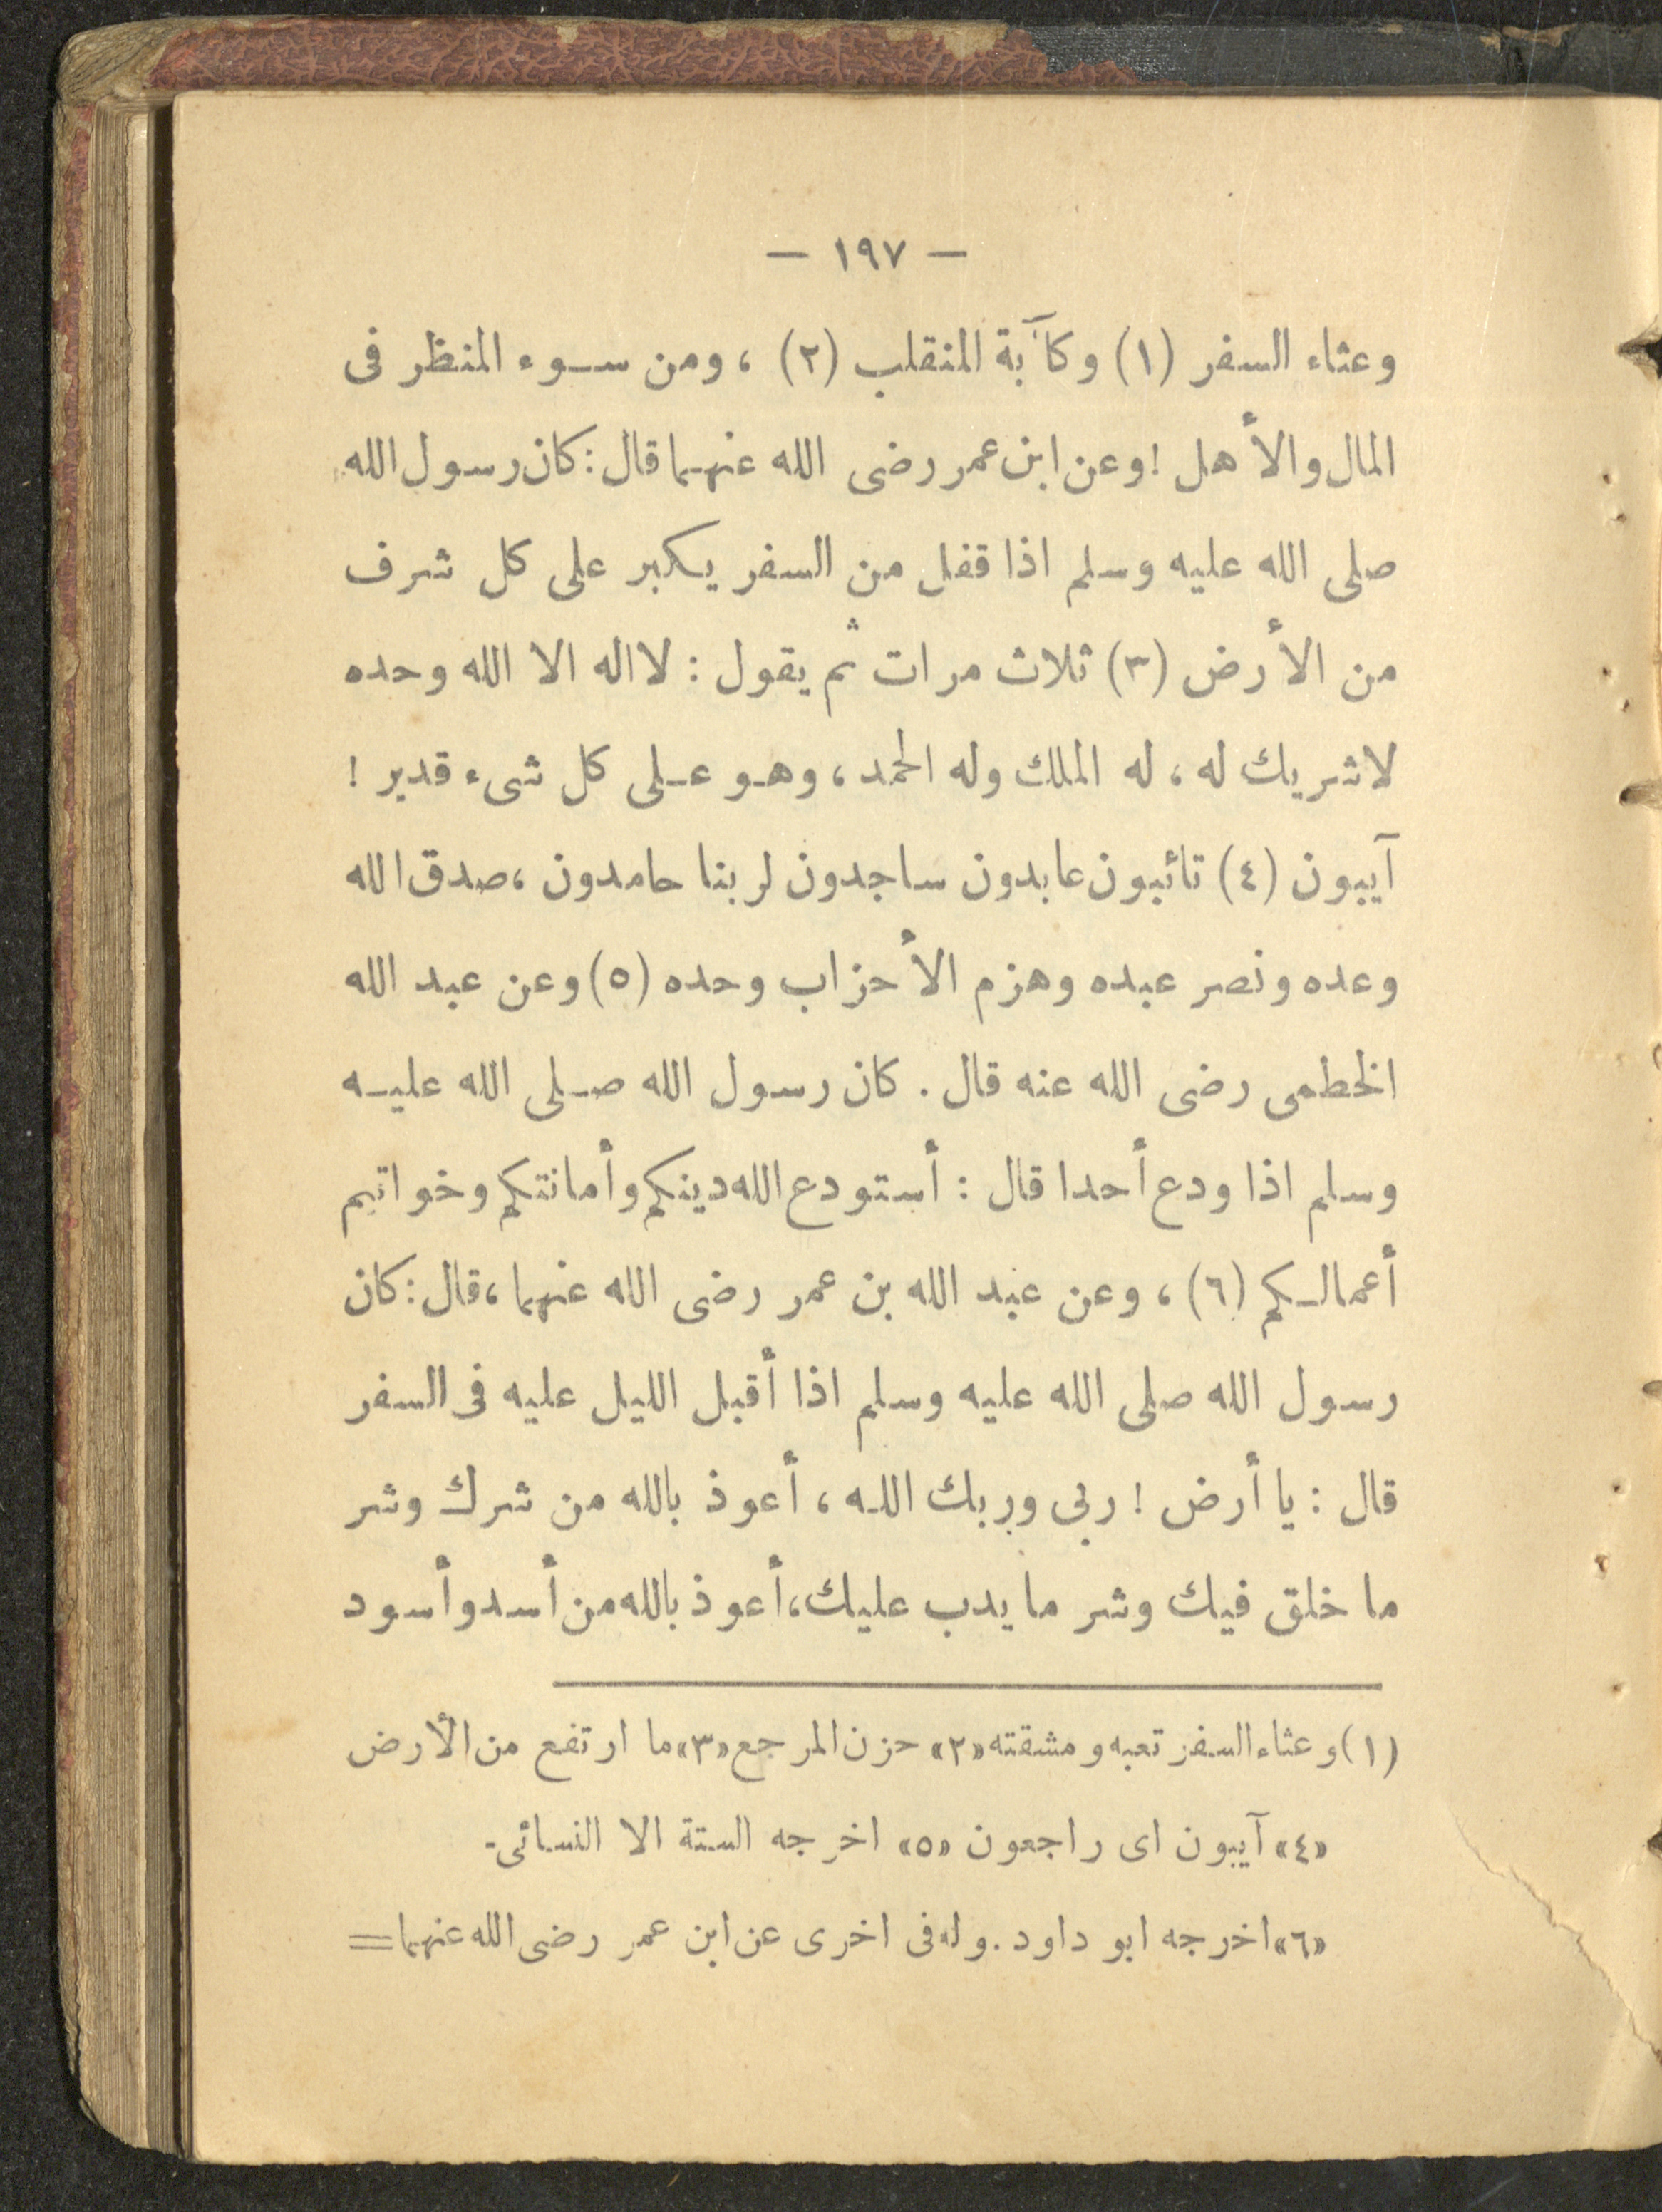 — ١٩٧ —
وعثاء السفر (١) وكآبة المنقلب (٢) ، ومن سوء المنظر فى
المال والأهل ! وعن ابن عمر رضى الله عنهما قال : كان رسول الله
صلى الله عليه وسلم اذا قفل من السفر يكبر على كل شرف
من الأرض (٣) ثلاث مرات ثم يقول : لا اله الا الله وحده
لا شريك له ، له الملك وله الحمد ، وهو على كل شىء قدير !
آيبون (٤) تائبون عابدون ساجدون لربنا حامدون ، صدق الله
وعده ونصر عبده وهزم الأحزاب وحده (٥) وعن عبد الله
الخطمى رضى الله عنه قال . كان رسول الله صلى الله عليه
وسلم اذا ودع أحدا قال : أستودع الله دينكم وأمانتكم وخواتيم
أعمالكم (٦) ، وعن عبد الله بن عمر رضى الله عنهما ، قال : كان
رسول الله صلى الله عليه وسلم اذا أقبل الليل عليه فى السفر
قال : يا أرض ! ربى وربك الله ، أعوذ بالله من شرك وشر
ما خلق فيك وشر ما يدب عليك ، أعوذ بالله من أسد وأسود
(١) وعثاء السفر تعبه ومشقته «٢» حزن المرجع «٣» ما ارتفع من الأرض
«٤» آيبون اى راجعون «٥» اخرجه الستة الا النسائى .
«٦» اخرجه ابو داود . وله فى اخرى عن ابن عمر رضى الله عنهما =